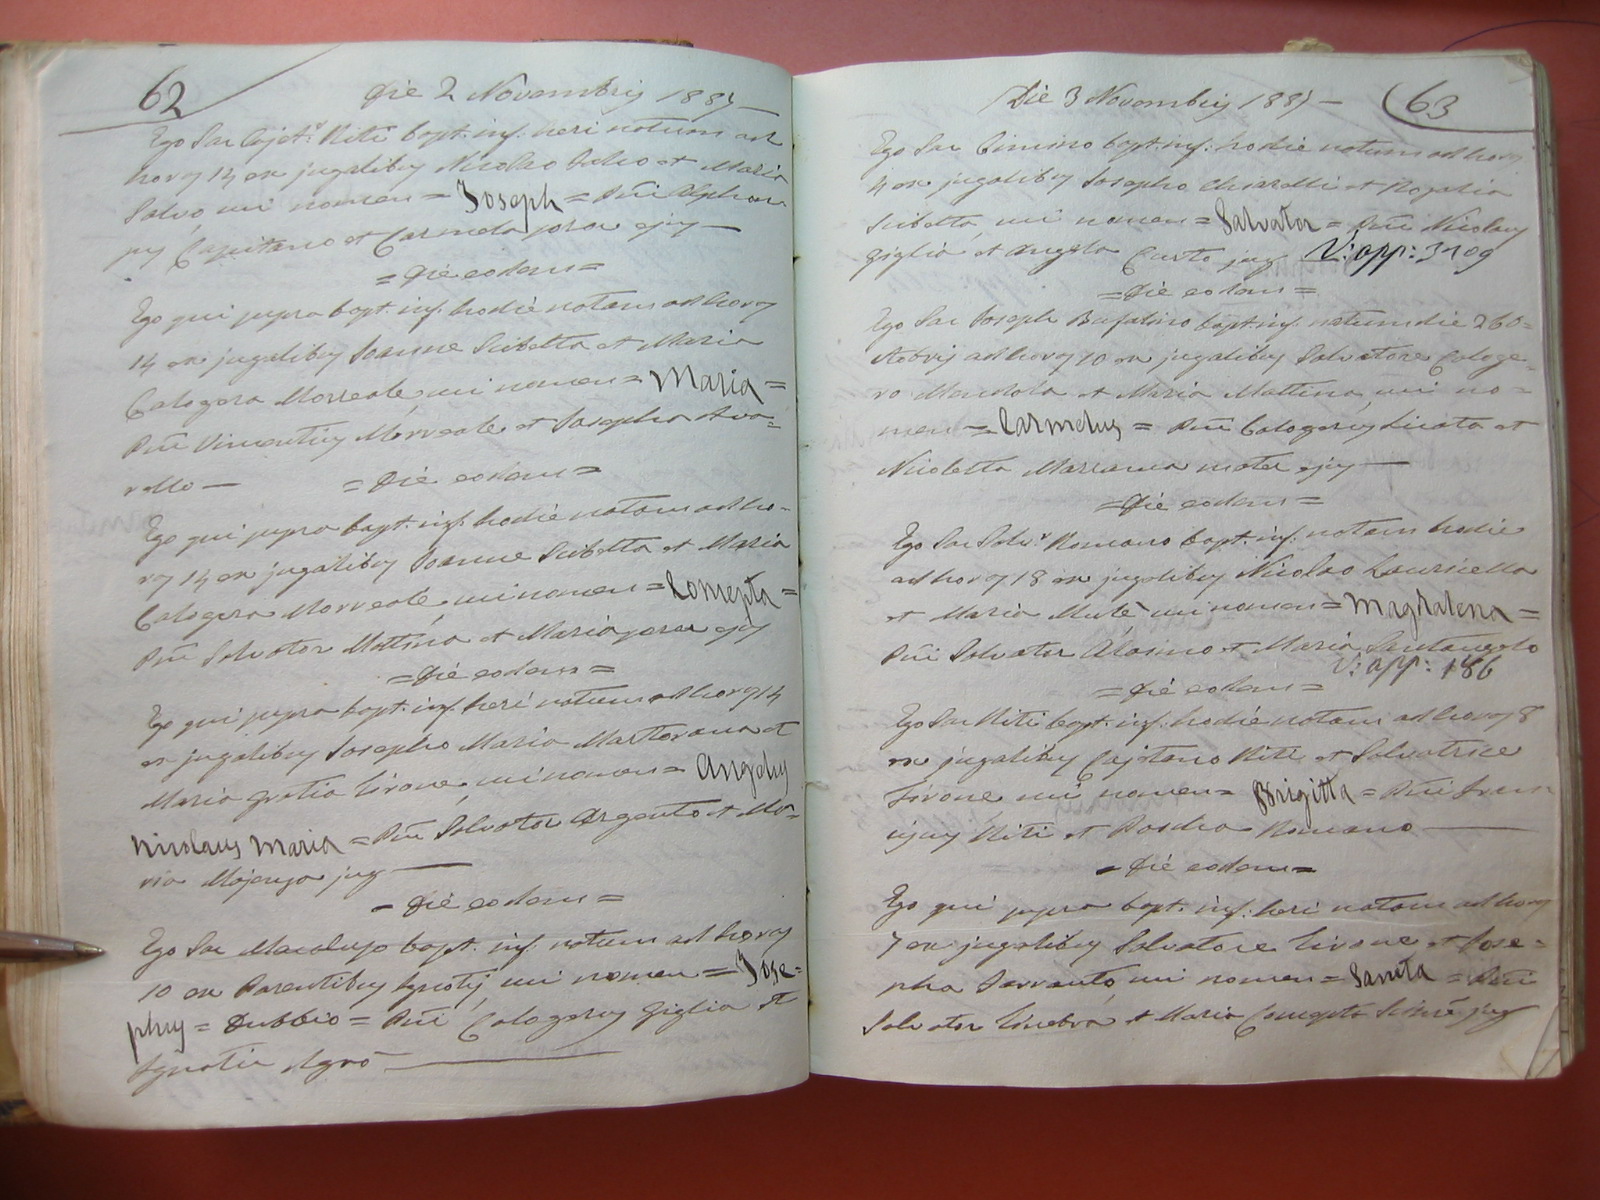 62
Die 2 Novembris 188
Ego Sac Cajet.s Riti bapt. inf. heri natum ad
horas 14 ex jugalibus Nicolao et Maria
Salvo cui nomen = Joseph = Pni Alphon
sus Capitano et Carmela soror ejus
= Die eodem =
Ego qui supra bapt. inf. hodie natam ad horas
14 ex jugalibus Joanne Scibetta et Maria
Calogera Morreale, cui nomen = Maria =
Pni Vincentius Morreale et Josepha Ava=
rello — = Die eodem =
Ego qui supra bapt. inf. hodie natam ad ho-
ras 14 ex jugalibus Joanne Scibetta et Maria
Calogera Morreale, cui nomen = Concepta =
Pni Salvator Mattina et Maria soror ejus
= Die eodem =
Ego qui supra bapt. inf. heri natum ad horas 14
ex jugalibus Josepho Maria Martorana et
Maria Gratia Livone, cui nomen = Angelus
Nicolaus Maria = Pni Salvator Argento et Ma=
ria jug
= Die eodem =
Ego Sac Macaluso bapt. inf. natum ad horas
10 ex Parentibus Ignotis cui nomen = Jose=
phus = Dubbio = Pni Calogerus Giglia et
Ignatia Agrò
Die 3 Novembris 188
63
Ego Sac Cimino bapt. inf. hodie natum ad horas
4 ex jugalibus Josepho Chiarelli et Rosaria
Scibetta, cui nomen = Salvator = Pni Nicolaus
Giglia et Angela Curto jug V: app: 3109
= Die eodem =
Ego Sac Joseph Bufalino bapt. inf. natum die 26 O=
ctobris ad horas 10 ex jugalibus Salvatore Caloge-
ro et Maria Mattina, cui no=
men = Carmelus = Pni Calogerus Licata et
Nicoletta Marianna mater ejus
= Die eodem =
Ego Sac Salv.r Romano bapt. inf. natam hodie
ad horas 18 ex jugalibus Nicolao Lauricella
et Maria Mulè cui nomen = Magdalena =
Pni Salvator Alaimo et Maria Santangelo
V: app: 186
= Die eodem =
Ego Sac Riti bapt. inf. hodie natam ad horas 8
ex jugalibus Cajetano Riti et Salvatrice
Livone cui nomen = Brigitta = Pni Fran
Riti et Romano
= Die eodem =
Ego qui supra bapt. inf. heri natam ad horas
7 ex jugalibus Salvatore Livone et Jose=
pha cui nomen = Santa = Pni
Salvator Ginebra et Maria Concepta jug